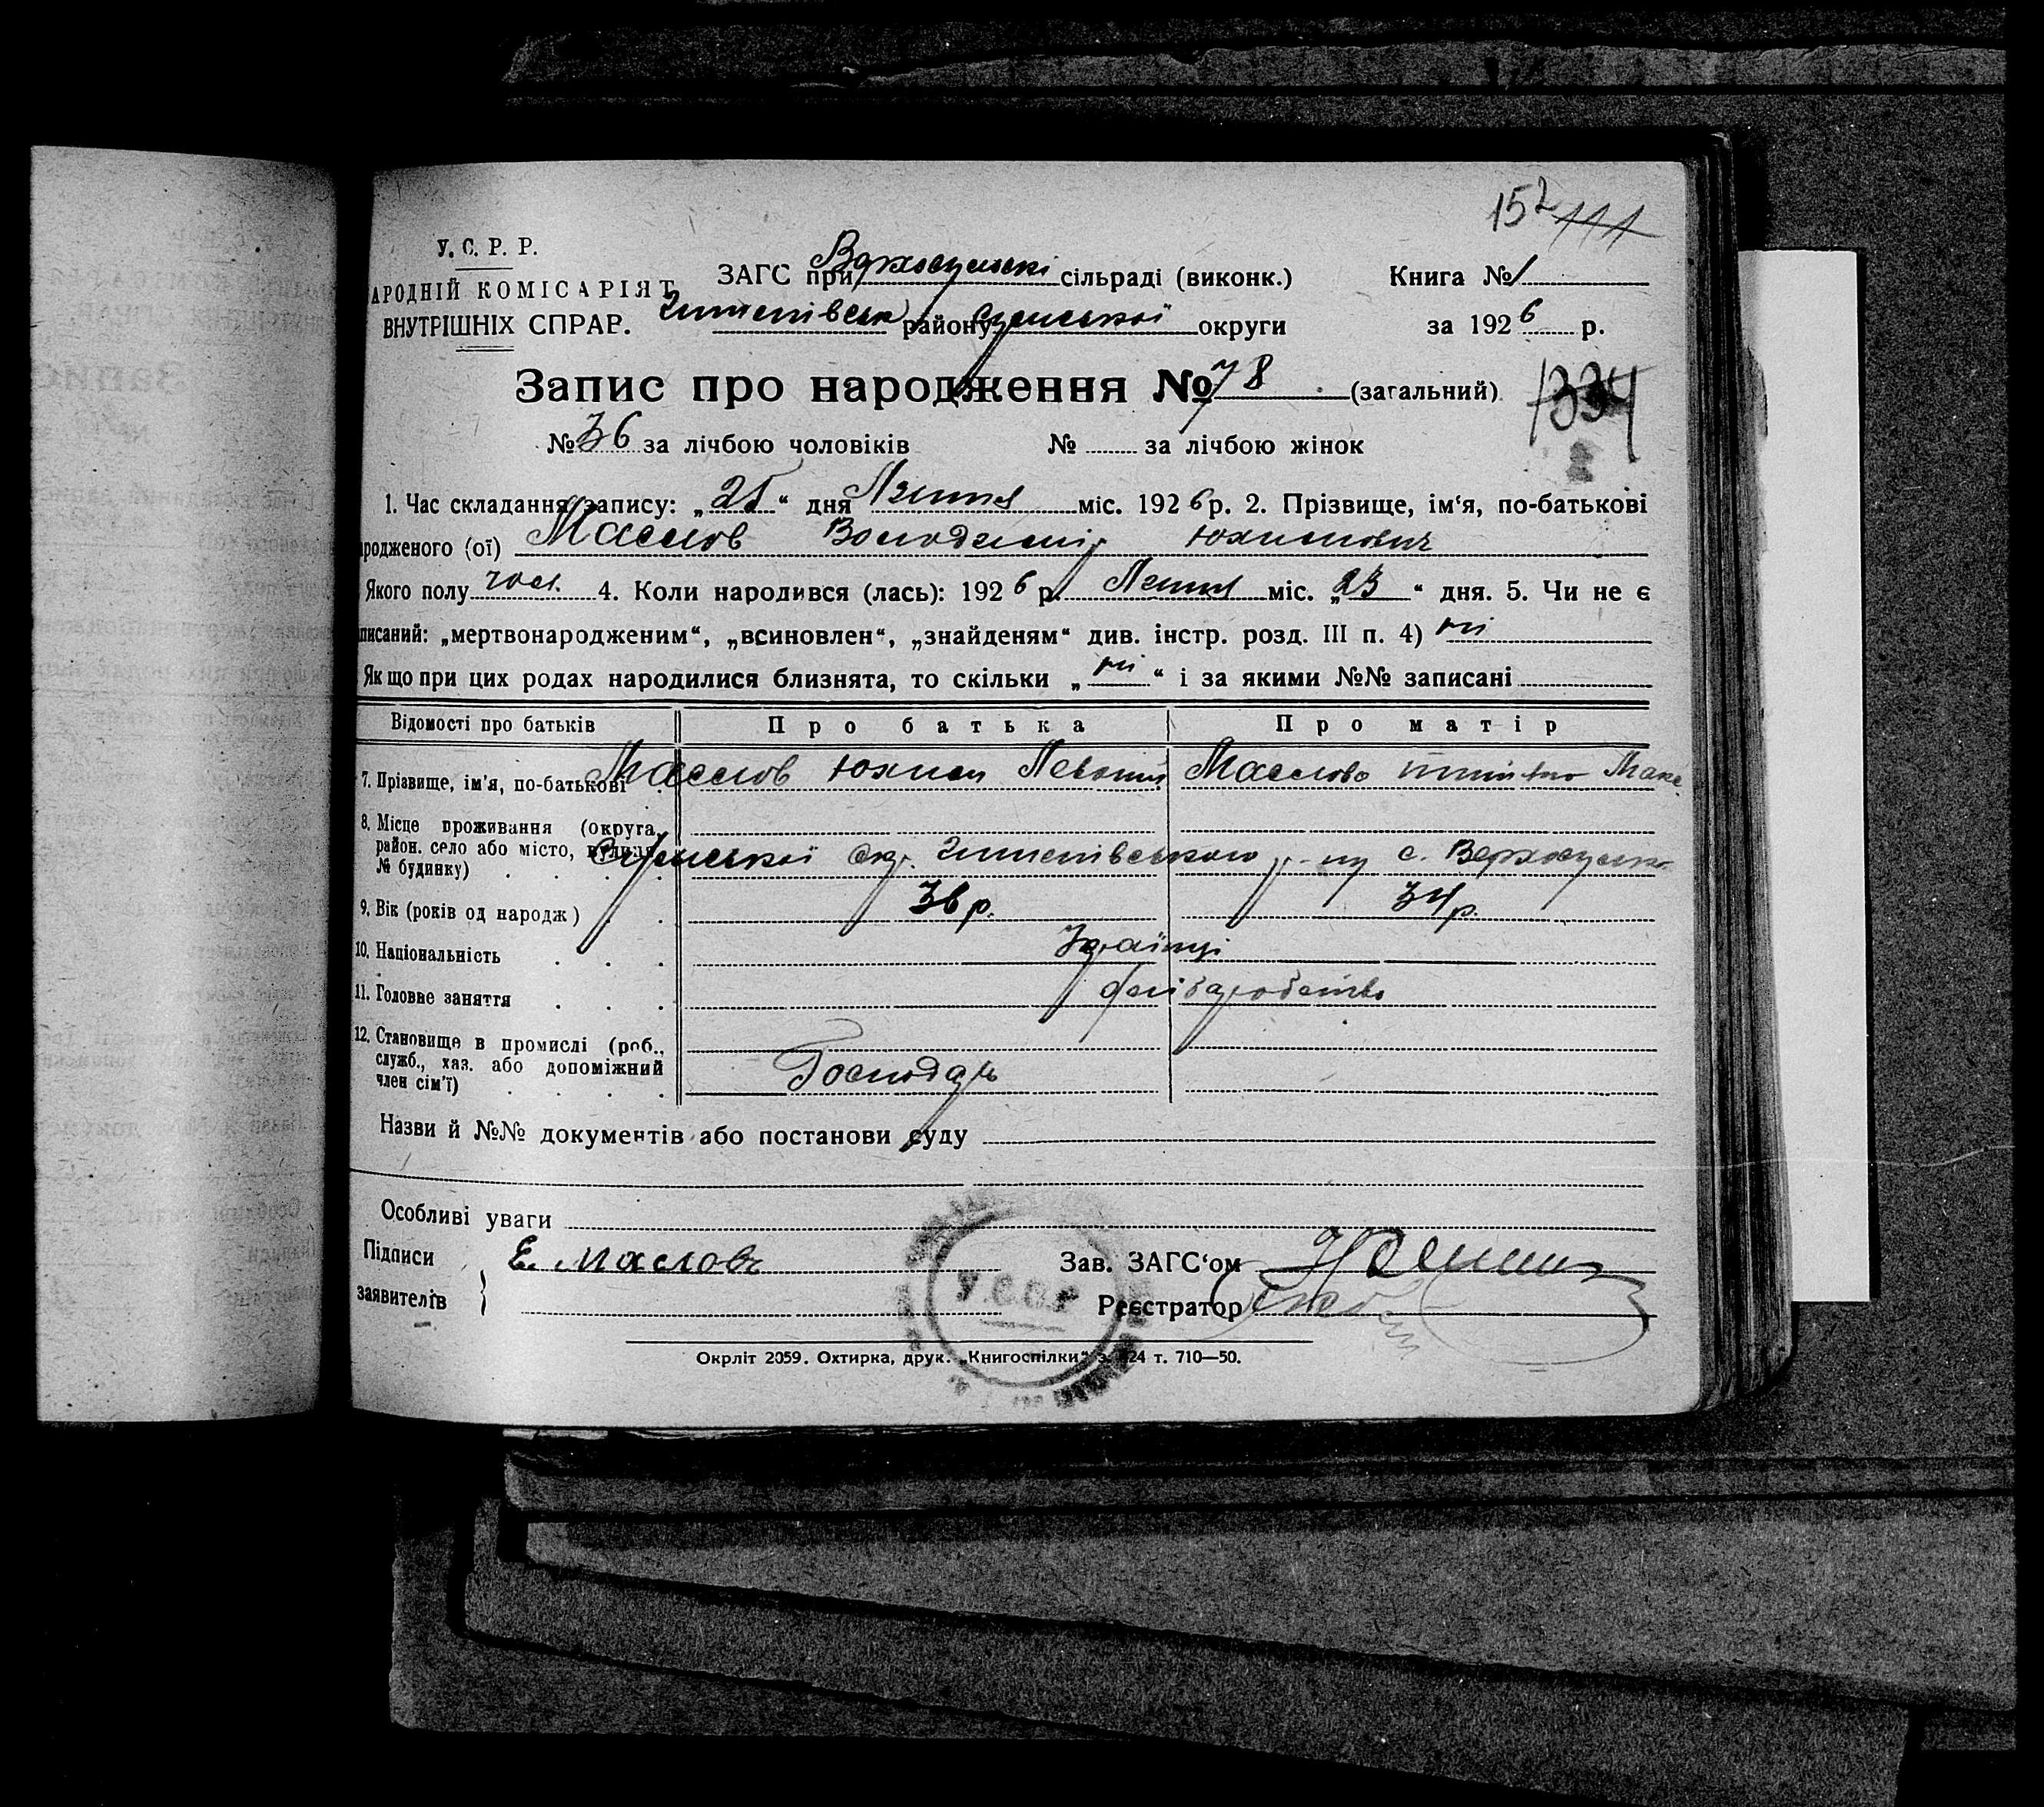 152 111
У. С. Р. Р.
АРОДНІЙ КОМІСАРІЯТ
ВНУТРІШНІХ СПРАР.
ЗАГС при Верхосульскі сільраді (виконк.)
Книга № 1
Штепівськ району Сумської округи
за 1926 р.
Запис про народження № 78 (загальний) 1334
№ 36 за лічбою чоловіків № за лічбою жінок
1. Час складання запису: „25“ дня Липня міс. 1926 р. 2. Прізвище, ім‘я, по-батькові
родженого (ої) Маслов Володимір Юхимович
Якого полу чол. 4. Коли народився (лась): 1926 р. Липня міс. „23“ дня. 5. Чи не є
писаний: „мертвонародженим“, „всиновлен“, „знайденям“ див. інстр. розд. III п. 4) ні
Якщо при цих родах народилися близнята, то скільки „ні“ і за якими №№ записані
Відомості про батьків Про батька Про матір
7. Прізвище, ім‘я, по-батькові Маслов Юхим Маслова
8. Місце проживання (округа, район. село або місто, вулиця, № будинку)
Сумської окр. Штепівського р-ну с. Верхосулка
9. Вік (років од народж) 36 р. 34 р.
10. Національність Українці
11. Головне заняття хліборобство
12. Становище в промислі (роб., служб., хаз. або допоміжний член сім‘ї) Господарь
Назви й №№ документів або постанови суду
Особливі уваги
Підписи заявителів } Е. Маслов
Зав. ЗАГС‘ом
Реєстратор
У.С.С.Р
Окрліт 2059. Охтирка, друк. „Книгоспілки“ з. 424 т. 710—50.